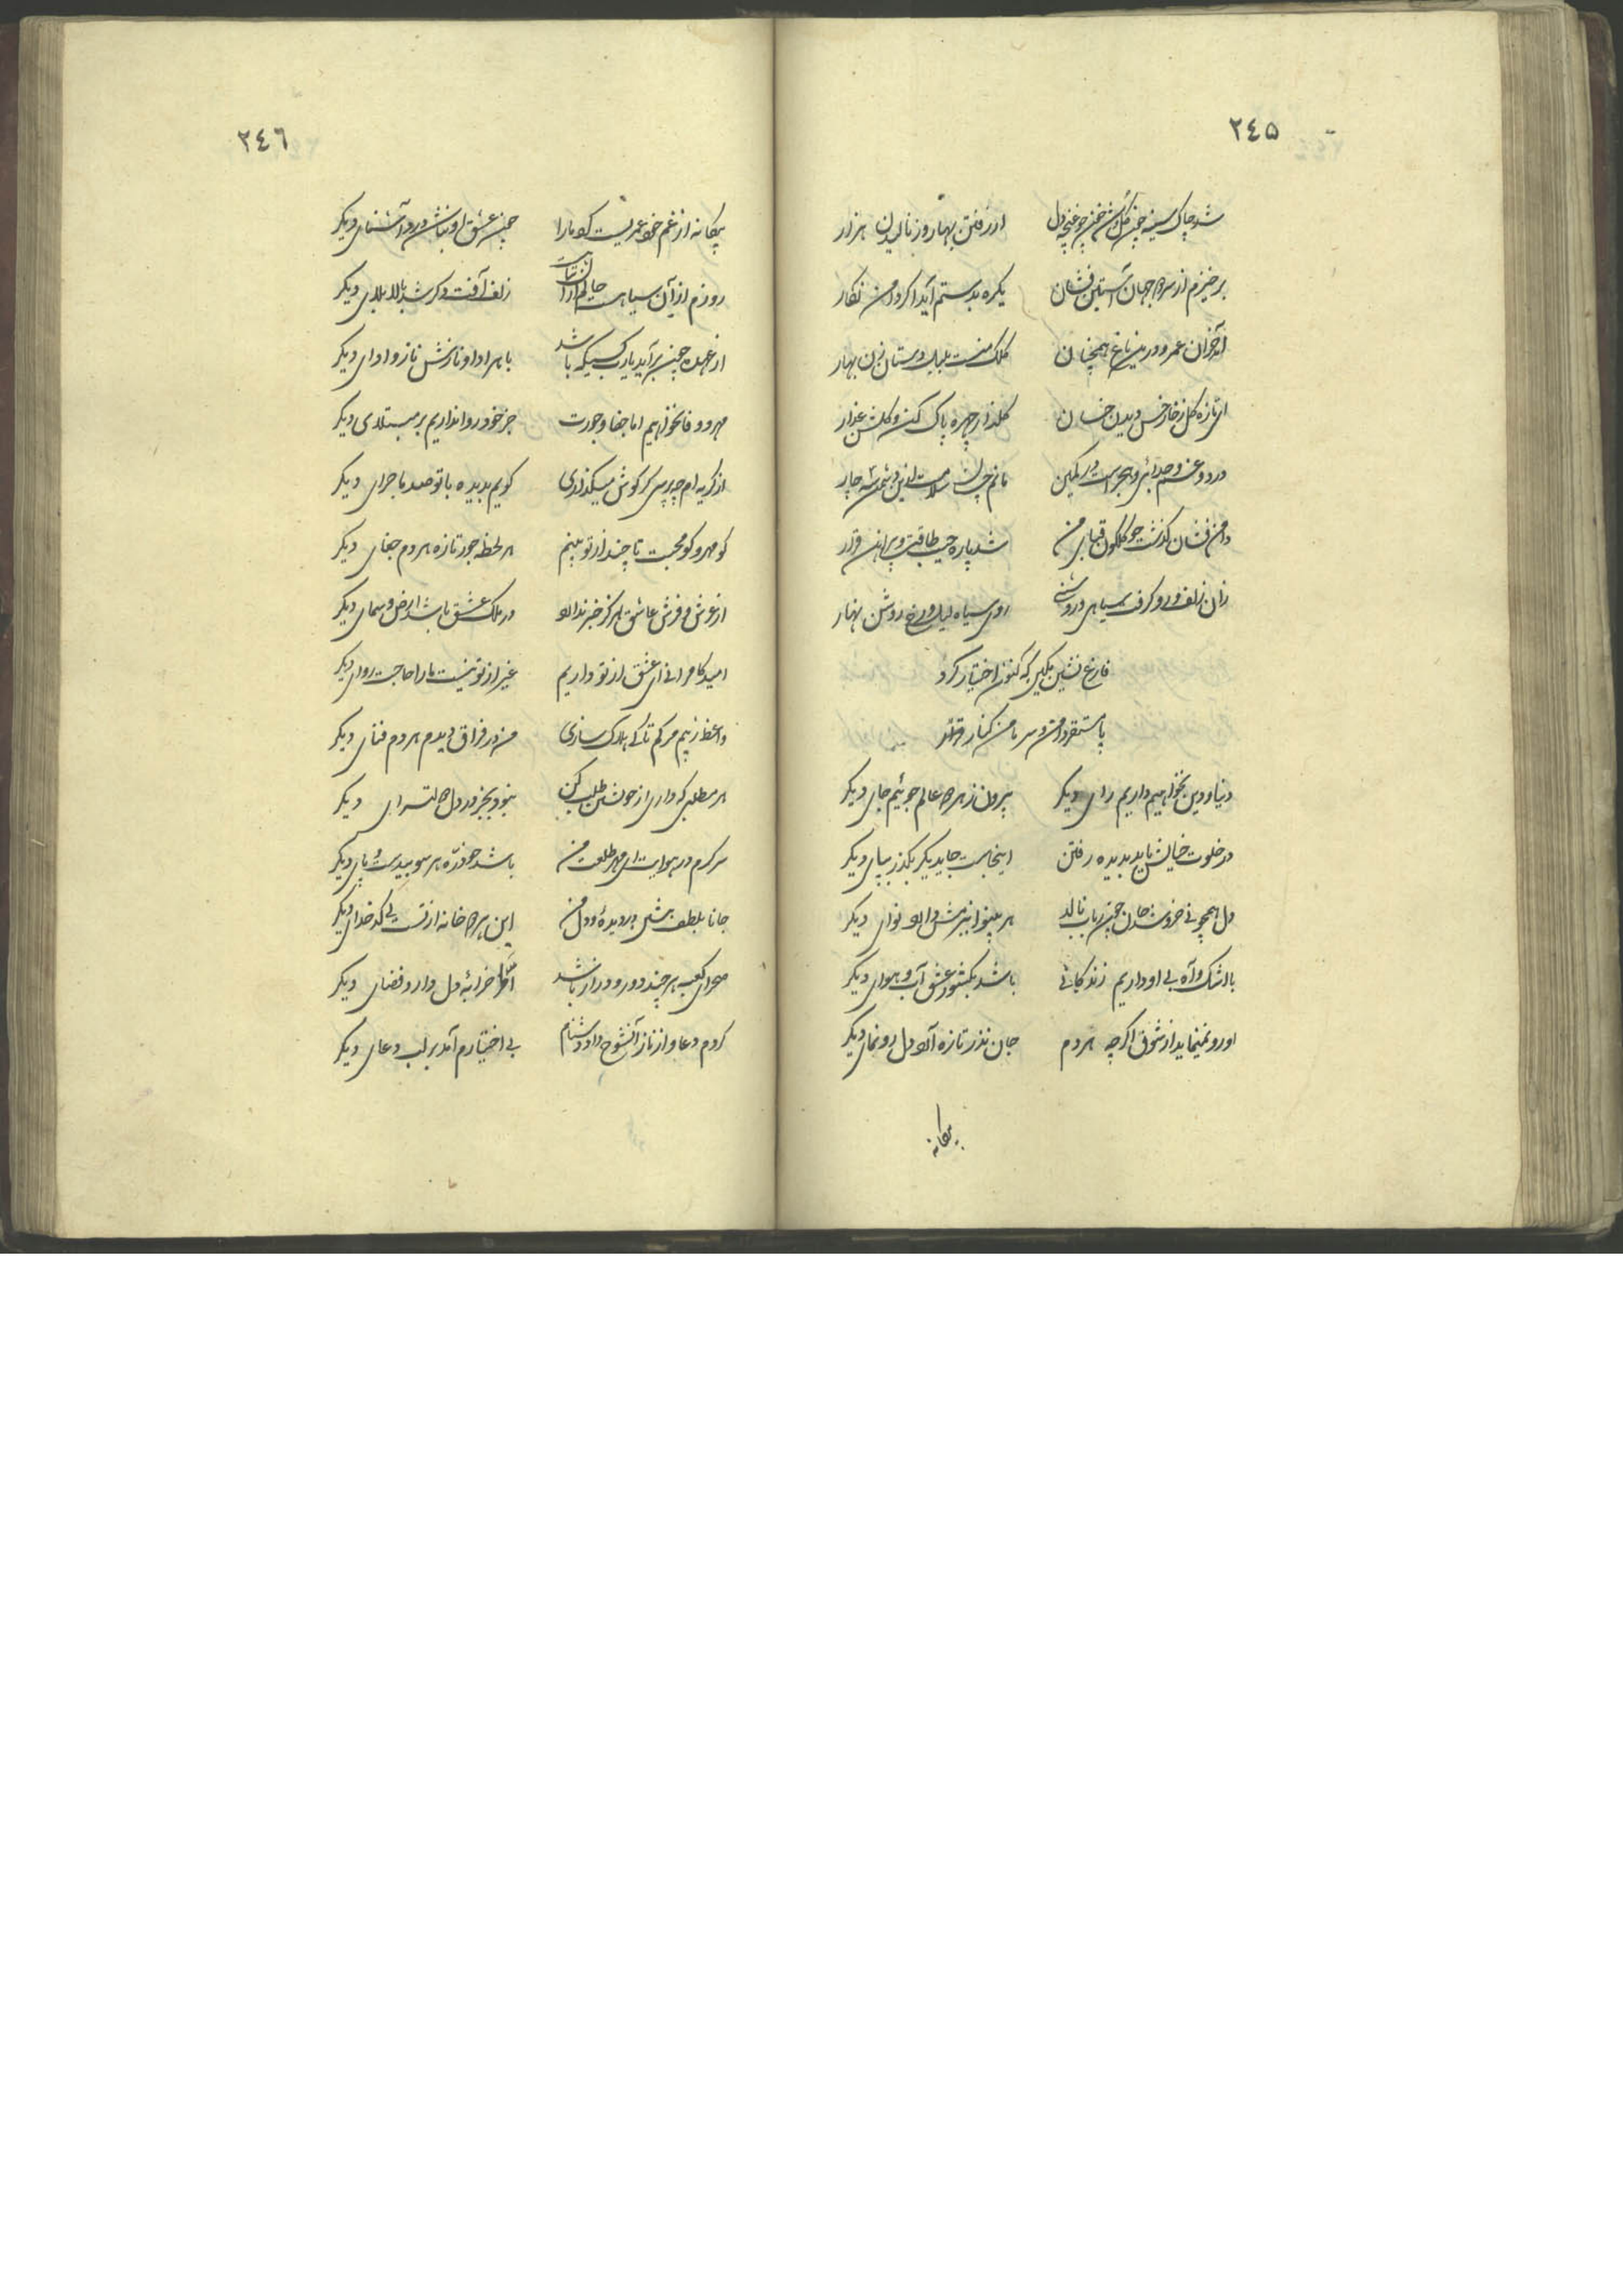 ٢٤٥
شد چاک سینه چون گل و شد خون چو غنچه دل از رفتن بهار و ز نالیدن هزار
برخیزم از سر دو جهان آستین فشان یکره بدستم آید اگر دامن نگار
آمد خزان عمر و درین باغ همچنان کلک منست بلبل دستان زن بهار
ای تازه گل ز خار خس دیدن خسان گلذار چهره پاک کن و گلشن عذار
درد و غم و جدائی و هجرست در کمین مانم چسان سلامت ازین دشمنه چار
دامن فشان گذشت چو گلگون قبای من شد پاره جیب طاقت و پیراهن قرار
زان زلف و رو گرفت سیاهی و روشنی روی سیاه لیل و رخ روشن نهار
فارغ نشین مکین که کنون اختیار کرد
پا مستقر دامن و سر دامن کنار قرار
دنیا و دین نخواهیم داریم رای دیگر بیرون ز هر دو عالم جوئیم جای دیگر
در خلوت خیالش باید بدیده رفتن اینجاست جای دیگر بگذر بپای دیگر
دل همچو نی خروشد جان چون رباب نالد هر بینوا نیز مش دارد نوای دیگر
با اشک و آه بی او داریم زندگانی باشد بکشور عشق آب و هوای دیگر
او رو نمینماید از شوق اگرچه هر دم جان نذر تازه آرد دل رونمای دیگر
بیگانه
٢٤٦
بیگانه از غم خود عمریست کو مارا چون عشق او نباشد درد آشنای دیگر
روزم از آن سیاهست حالم از آن زلف آفت دگر شد بالا بلای دیگر
از عهده چون برآید یارب کسیکه باشد با هر ادا و نازش ناز و ادای دیگر
مهر و وفا نخواهیم اما جفا و جورت جز خود روا نداریم بر مبتلای دیگر
از گریه ام چه پرسی گر گوش میگذاری گویم بدیده با تو صد ماجرای دیگر
کو مهر و کو محبت تا چند از تو بینم هر لحظه جور تازه هر دم جفای دیگر
از عرش و فرش عاشق هرگز خبر ندارد در ملک عشق باشد ارض و سمای دیگر
امید کامرانی ای عشق از تو داریم غیر از تو نیست ما را حاجت روای دیگر
واعظ ز بیم مرگم تا کی هلاک سازی من در فراق دیدم هر دم فنای دیگر
هر مطلبی که داری از خویشتن طلب کن نبود بجز در دل دولتسرای دیگر
سرگرم در هوایت ای مهر طلعت من باشد چو ذره هر سو بیدست و پای دیگر
جانا بلطف بنشین در دیده و دل من این هر دو خانه از تست نی کدخدای دیگر
صحرای کعبه هر چند دور و دراز باشد اما خرابه دل دارد فضای دیگر
کردم دعا و از ناز آنشوخ داد دشنام بی اختیارم آمد بر لب دعای دیگر